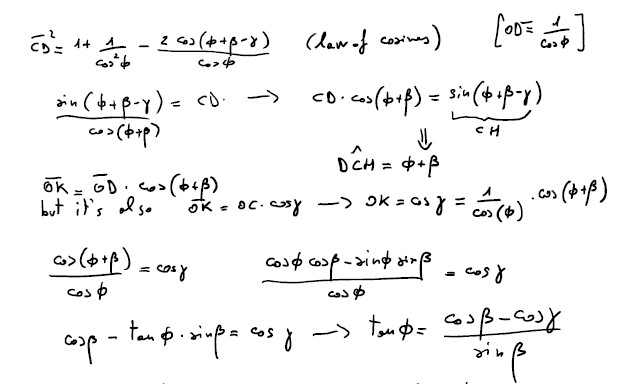 CD̅² = 1 + 1/cos²ϕ − 2 cos(ϕ+β−γ)/cosϕ (law of cosines) [OD̅ = 1/cosϕ]
sin(ϕ+β−γ)/cos(ϕ+β) = CD. → CD·cos(ϕ+β) = sin(ϕ+β−γ)
CH
⇓
DĈH = ϕ+β
O̅K̅ = O̅D̅ · cos(ϕ+β)
but it's also O̅K̅ = OC·cosγ → OK = cosγ = 1/cos(ϕ) · cos(ϕ+β)
cos(ϕ+β)/cosϕ = cosγ (cosϕ cosβ − sinϕ sinβ)/cosϕ = cosγ
cosβ − tanϕ · sinβ = cosγ → tanϕ = (cosβ − cosγ)/sinβ